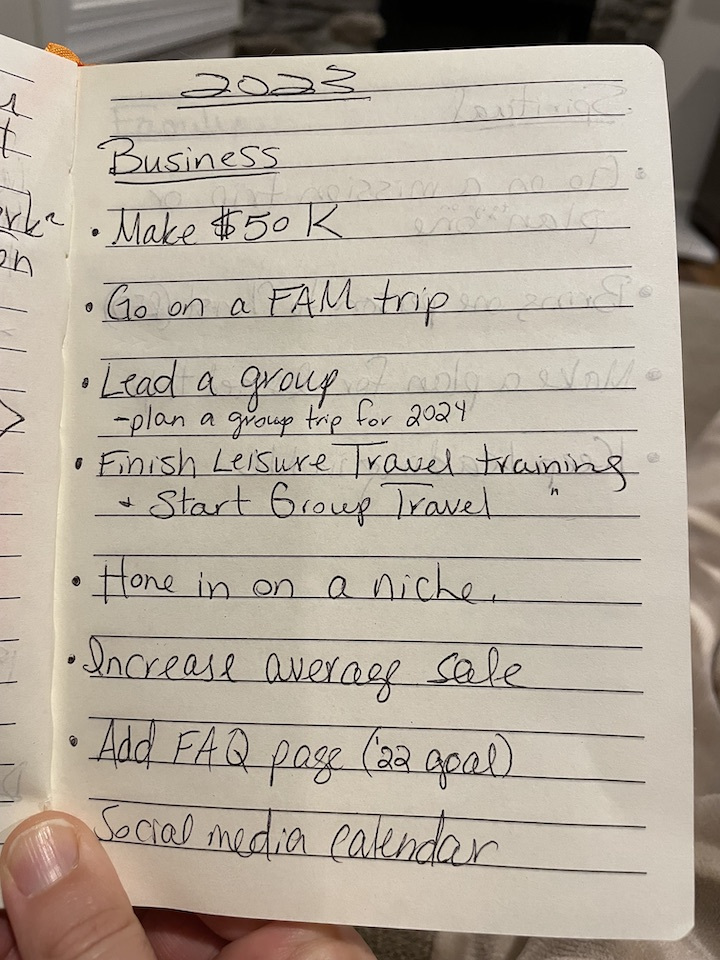 2023
Business
• Make $50K
• Go on a FAM trip
• Lead a group
-plan a group trip for 2024
• Finish Leisure Travel training
+ Start Group Travel "
• Hone in on a niche.
• Increase average sale
• Add FAQ page ('22 goal)
Social media calendar